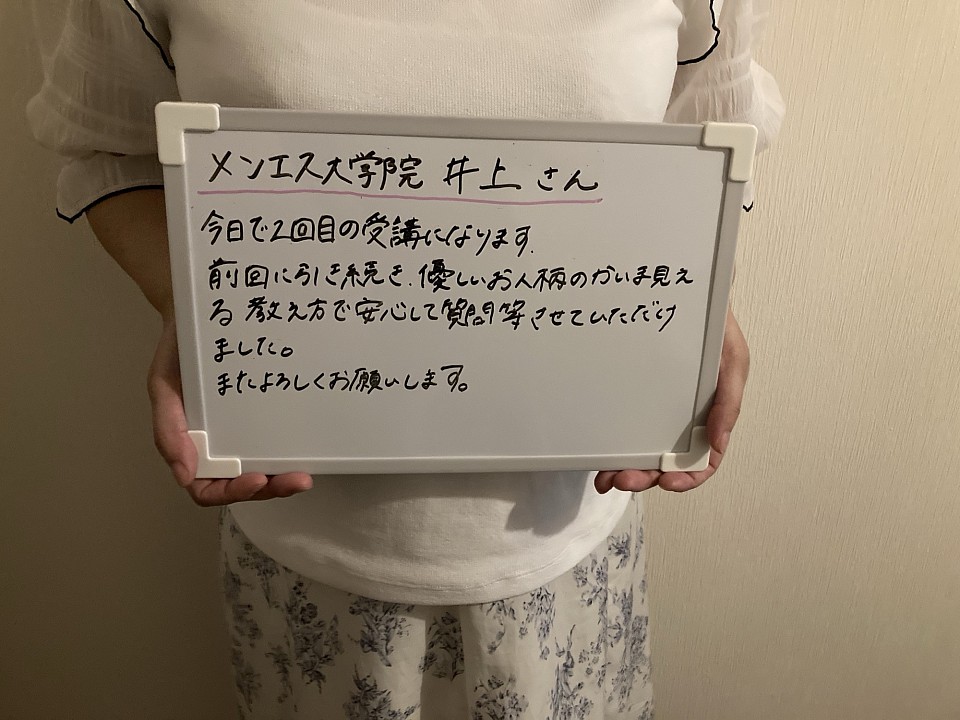 メンエス大学院 井上 さん
今日で2回目の受講になります.
前回に引き続き、優しいお人柄のかいま見え
る 教え方で安心して質問等させていただけ
ました。
またよろしくお願いします。